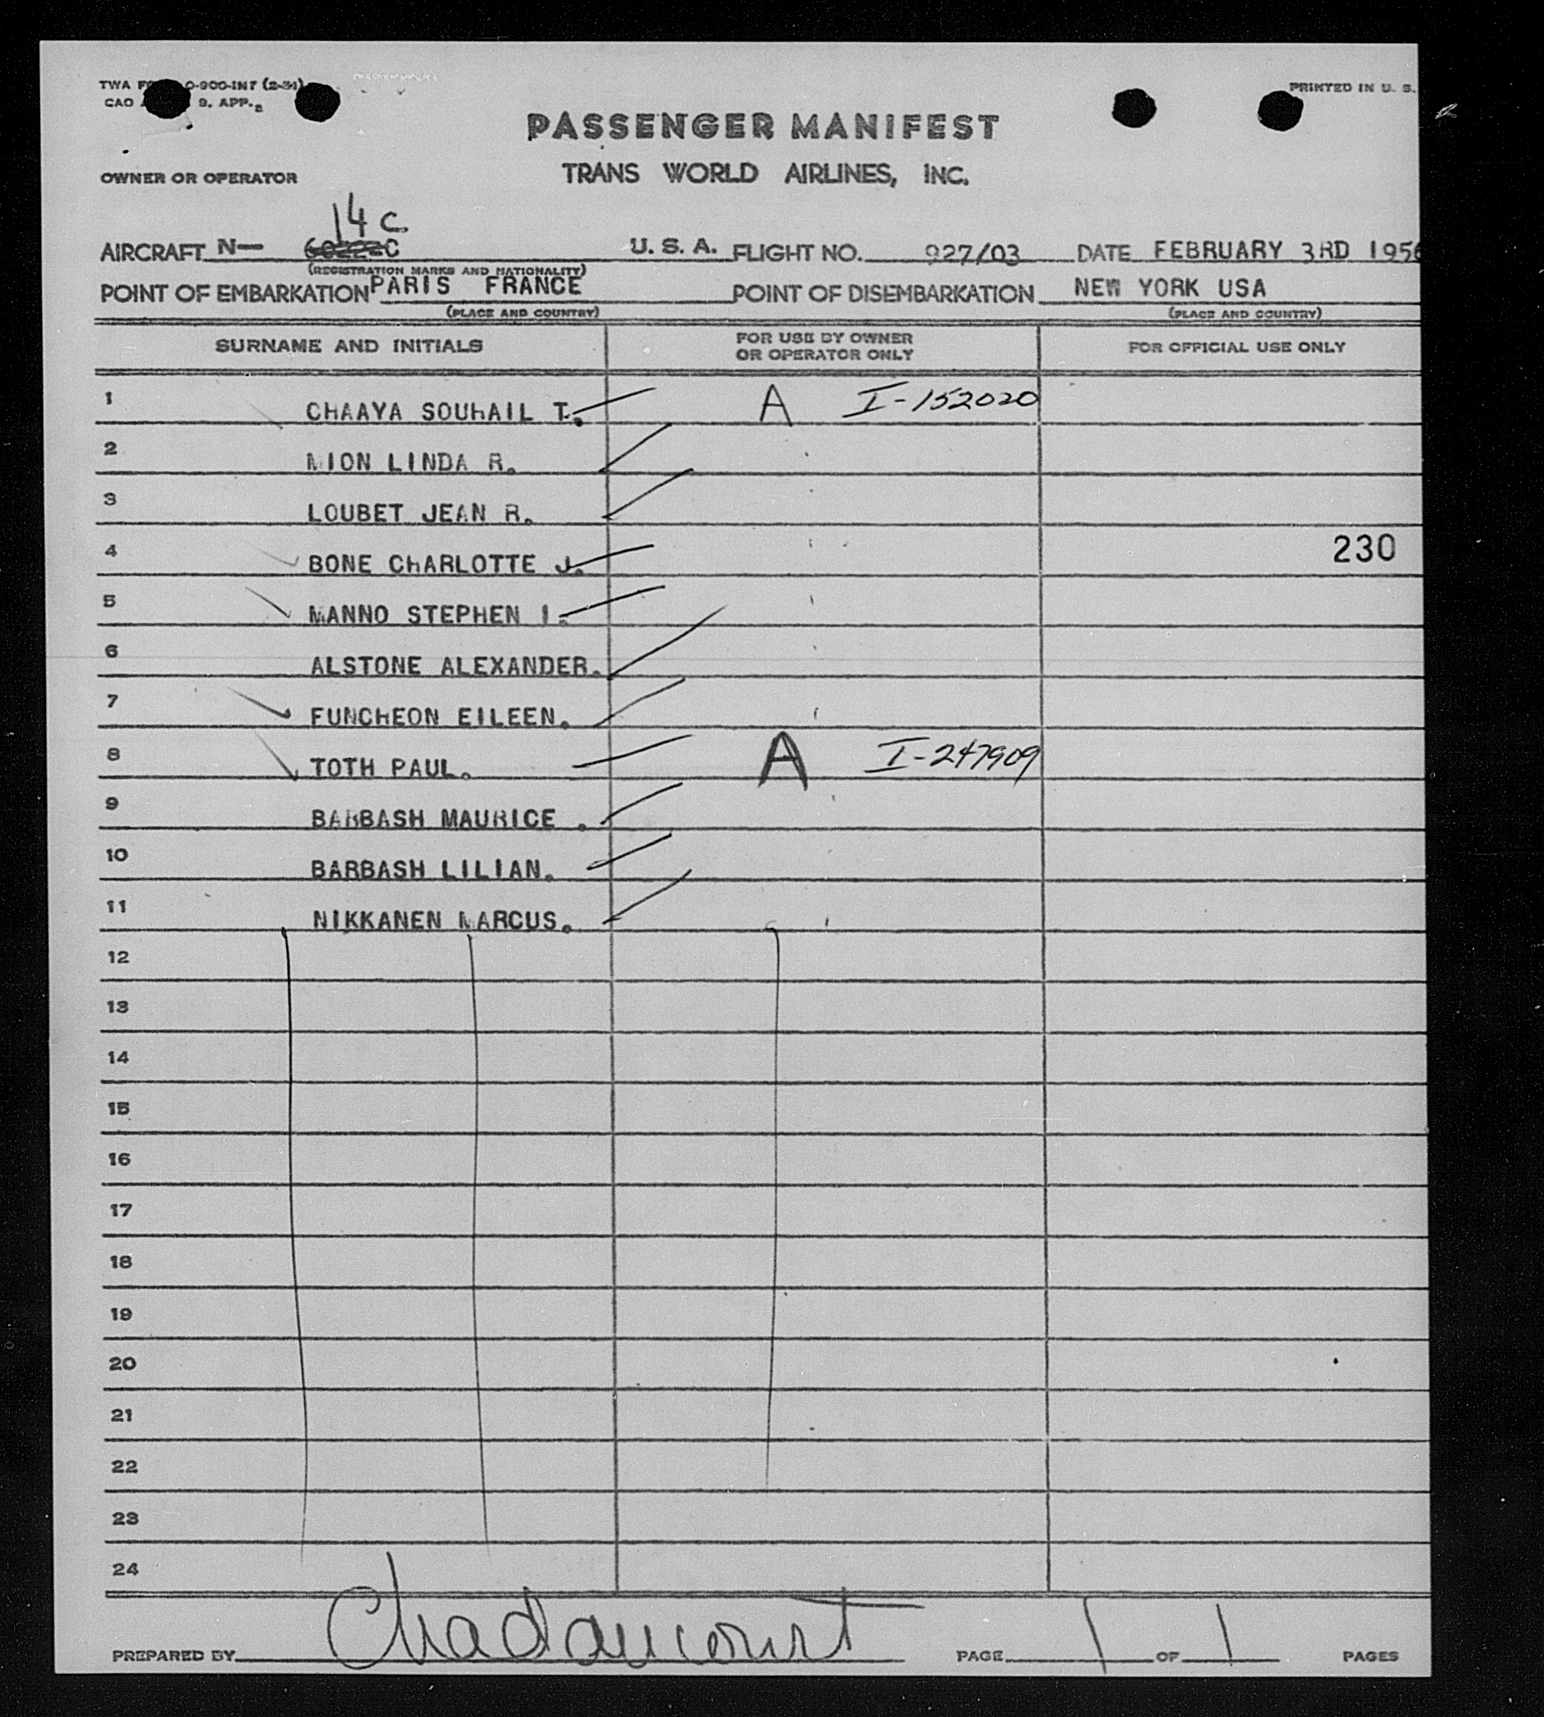 TWA F 0-900-INT (2-51)
CAO 9. APP. 2
PRINTED IN U. S.
PASSENGER MANIFEST
TRANS WORLD AIRLINES, INC.
OWNER OR OPERATOR
14 C
AIRCRAFT N— C U. S. A. FLIGHT NO. 927/03 DATE FEBRUARY 3RD 1956
(REGISTRATION MARKS AND NATIONALITY)
POINT OF EMBARKATION PARIS FRANCE POINT OF DISEMBARKATION NEW YORK USA
(PLACE AND COUNTRY) (PLACE AND COUNTRY)
SURNAME AND INITIALS FOR USE BY OWNER OR OPERATOR ONLY FOR OFFICIAL USE ONLY
1 CHAAYA SOUHAIL T. A I-152020
2 MION LINDA R.
3 LOUBET JEAN R.
4 BONE CHARLOTTE J. 230
5 MANNO STEPHEN I.
6 ALSTONE ALEXANDER.
7 FUNCHEON EILEEN.
8 TOTH PAUL. A I-247909
9 BARBASH MAURICE .
10 BARBASH LILIAN.
11 NIKKANEN MARCUS.
12
13
14
15
16
17
18
19
20
21
22
23
24
PREPARED BY PAGE 1 OF 1 PAGES